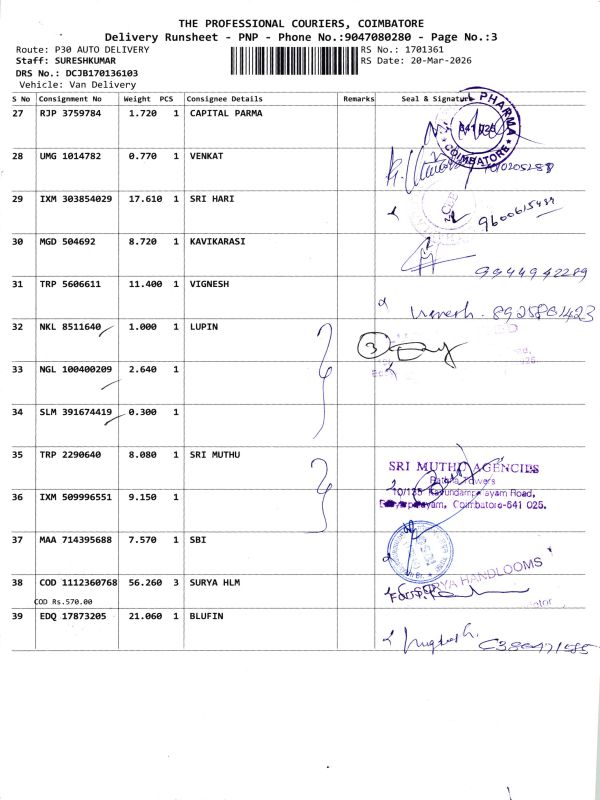 THE PROFESSIONAL COURIERS, COIMBATORE
Delivery Runsheet - PNP - Phone No.:9047080280 - Page No.:3
Route: P30 AUTO DELIVERY
RS No.: 1701361
Staff: SURESHKUMAR
RS Date: 20-Mar-2026
DRS No.: DCJB170136103
Vehicle: Van Delivery
S No Consignment No Weight PCS Consignee Details Remarks Seal & Signature
27 RJP 3759784 1.720 1 CAPITAL PARMA
PHARMA
641 025
COIMBATORE
28 UMG 1014782 0.770 1 VENKAT
29 IXM 303854029 17.610 1 SRI HARI
9600615437
30 MGD 504692 8.720 1 KAVIKARASI
9944942289
31 TRP 5606611 11.400 1 VIGNESH
8925861423
32 NKL 8511640 1.000 1 LUPIN
3
33 NGL 100400209 2.640 1
34 SLM 391674419 0.300 1
35 TRP 2290640 8.080 1 SRI MUTHU
SRI MUTHU AGENCIES
Towers
36 IXM 509996551 9.150 1
10/135 Kavundampalayam Road,
Coimbatore-641 025.
37 MAA 714395688 7.570 1 SBI
38 COD 1112360768 56.260 3 SURYA HLM
SURYA HANDLOOMS
COD Rs.570.00
39 EDQ 17873205 21.060 1 BLUFIN